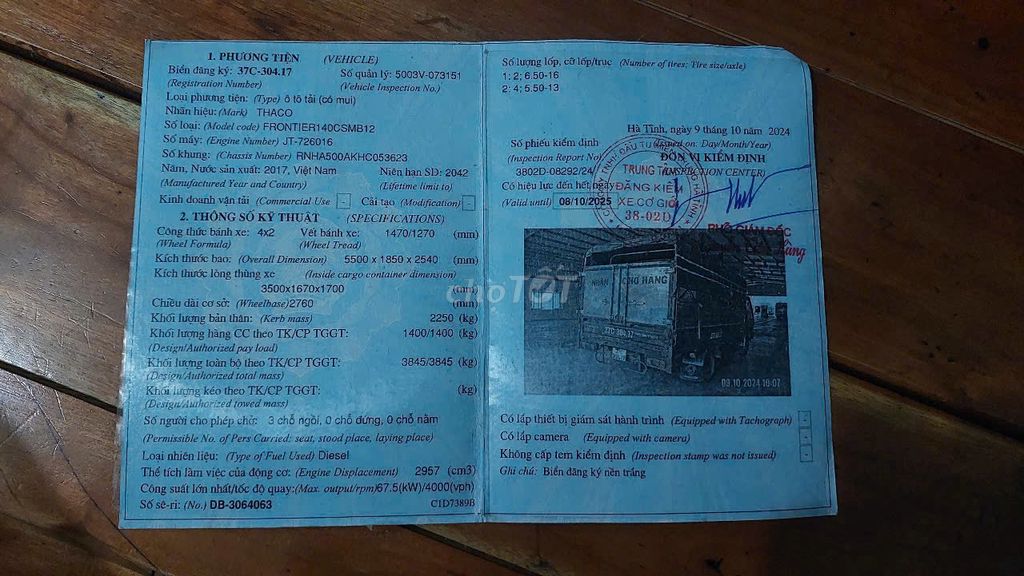 1. PHƯƠNG TIỆN (VEHICLE)
Biển đăng ký: 37C-304.17 Số quản lý: 5003V-073151
(Registration Number) (Vehicle Inspection No.)
Loại phương tiện: (Type) ô tô tải (có mui)
Nhãn hiệu: (Mark) THACO
Số loại: (Model code) FRONTIER140CSMB12
Số máy: (Engine Number) JT-726016
Số khung: (Chassis Number) RNHA500AKHC053623
Năm, Nước sản xuất: 2017, Việt Nam Niên hạn SD: 2042
(Manufactured Year and Country) (Lifetime limit to)
Kinh doanh vận tải (Commercial Use - Cải tạo (Modification) -
2. THÔNG SỐ KỸ THUẬT (SPECIFICATIONS)
Công thức bánh xe: 4x2 Vết bánh xe: 1470/1270 (mm)
(Wheel Formula) (Wheel Tread)
Kích thước bao: (Overall Dimension) 5500 x 1850 x 2540 (mm)
Kích thước lòng thùng xe (Inside cargo container dimension)
3500x1670x1700 (mm)
Chiều dài cơ sở: (Wheelbase) 2760 (mm)
Khối lượng bản thân: (Kerb mass) 2250 (kg)
Khối lượng hàng CC theo TK/CP TGGT: 1400/1400 (kg)
(Design/Authorized pay load)
Khối lượng toàn bộ theo TK/CP TGGT: 3845/3845 (kg)
(Design/Authorized total mass)
Khối lượng kéo theo TK/CP TGGT: (kg)
(Design/Authorized towed mass)
Số người cho phép chở: 3 chỗ ngồi, 0 chỗ đứng, 0 chỗ nằm
(Permissible No. of Pers Carried: seat, stood place, laying place)
Loại nhiên liệu: (Type of Fuel Used) Diesel
Thể tích làm việc của động cơ: (Engine Displacement) 2957 (cm3)
Công suất lớn nhất/tốc độ quay: (Max. output/rpm) 67.5(kW)/4000(vph)
Số sê-ri: (No.) DB-3064063 C1D7389B
Số lượng lốp, cỡ lốp/trục (Number of tires; Tire size/axle)
1: 2; 6.50-16
2: 4; 5.50-13
Hà Tĩnh, ngày 9 tháng 10 năm 2024
Số phiếu kiểm định (Issued on: Day/Month/Year)
(Inspection Report No) ĐƠN VỊ KIỂM ĐỊNH
3802D-08292/24 (INSPECTION CENTER)
Có hiệu lực đến hết ngày
(Valid until) 08/10/2025
TRUNG TÂM
ĐĂNG KIỂM
XE CƠ GIỚI
38-02D
PHÓ GIÁM ĐỐC
NHẬN CHỞ HÀNG
37C-304.17
09 10 2024 10:07
chợ TỐT
Có lắp thiết bị giám sát hành trình (Equipped with Tachograph) -
Có lắp camera (Equipped with camera) -
Không cấp tem kiểm định (Inspection stamp was not issued) -
Ghi chú: Biển đăng ký nền trắng